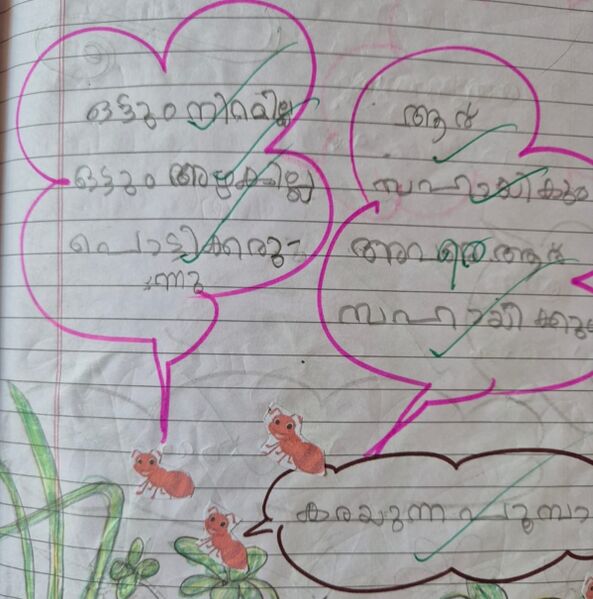 ഒട്ടും നിറമില്ല
ഒട്ടും അഴകില്ല
പൊട്ടിക്കരയു-
ന്നു
ആര്
സഹായിക്കും
അവളെ ആര്
സഹായിക്കും
കരയുന്ന പൂമ്പാ